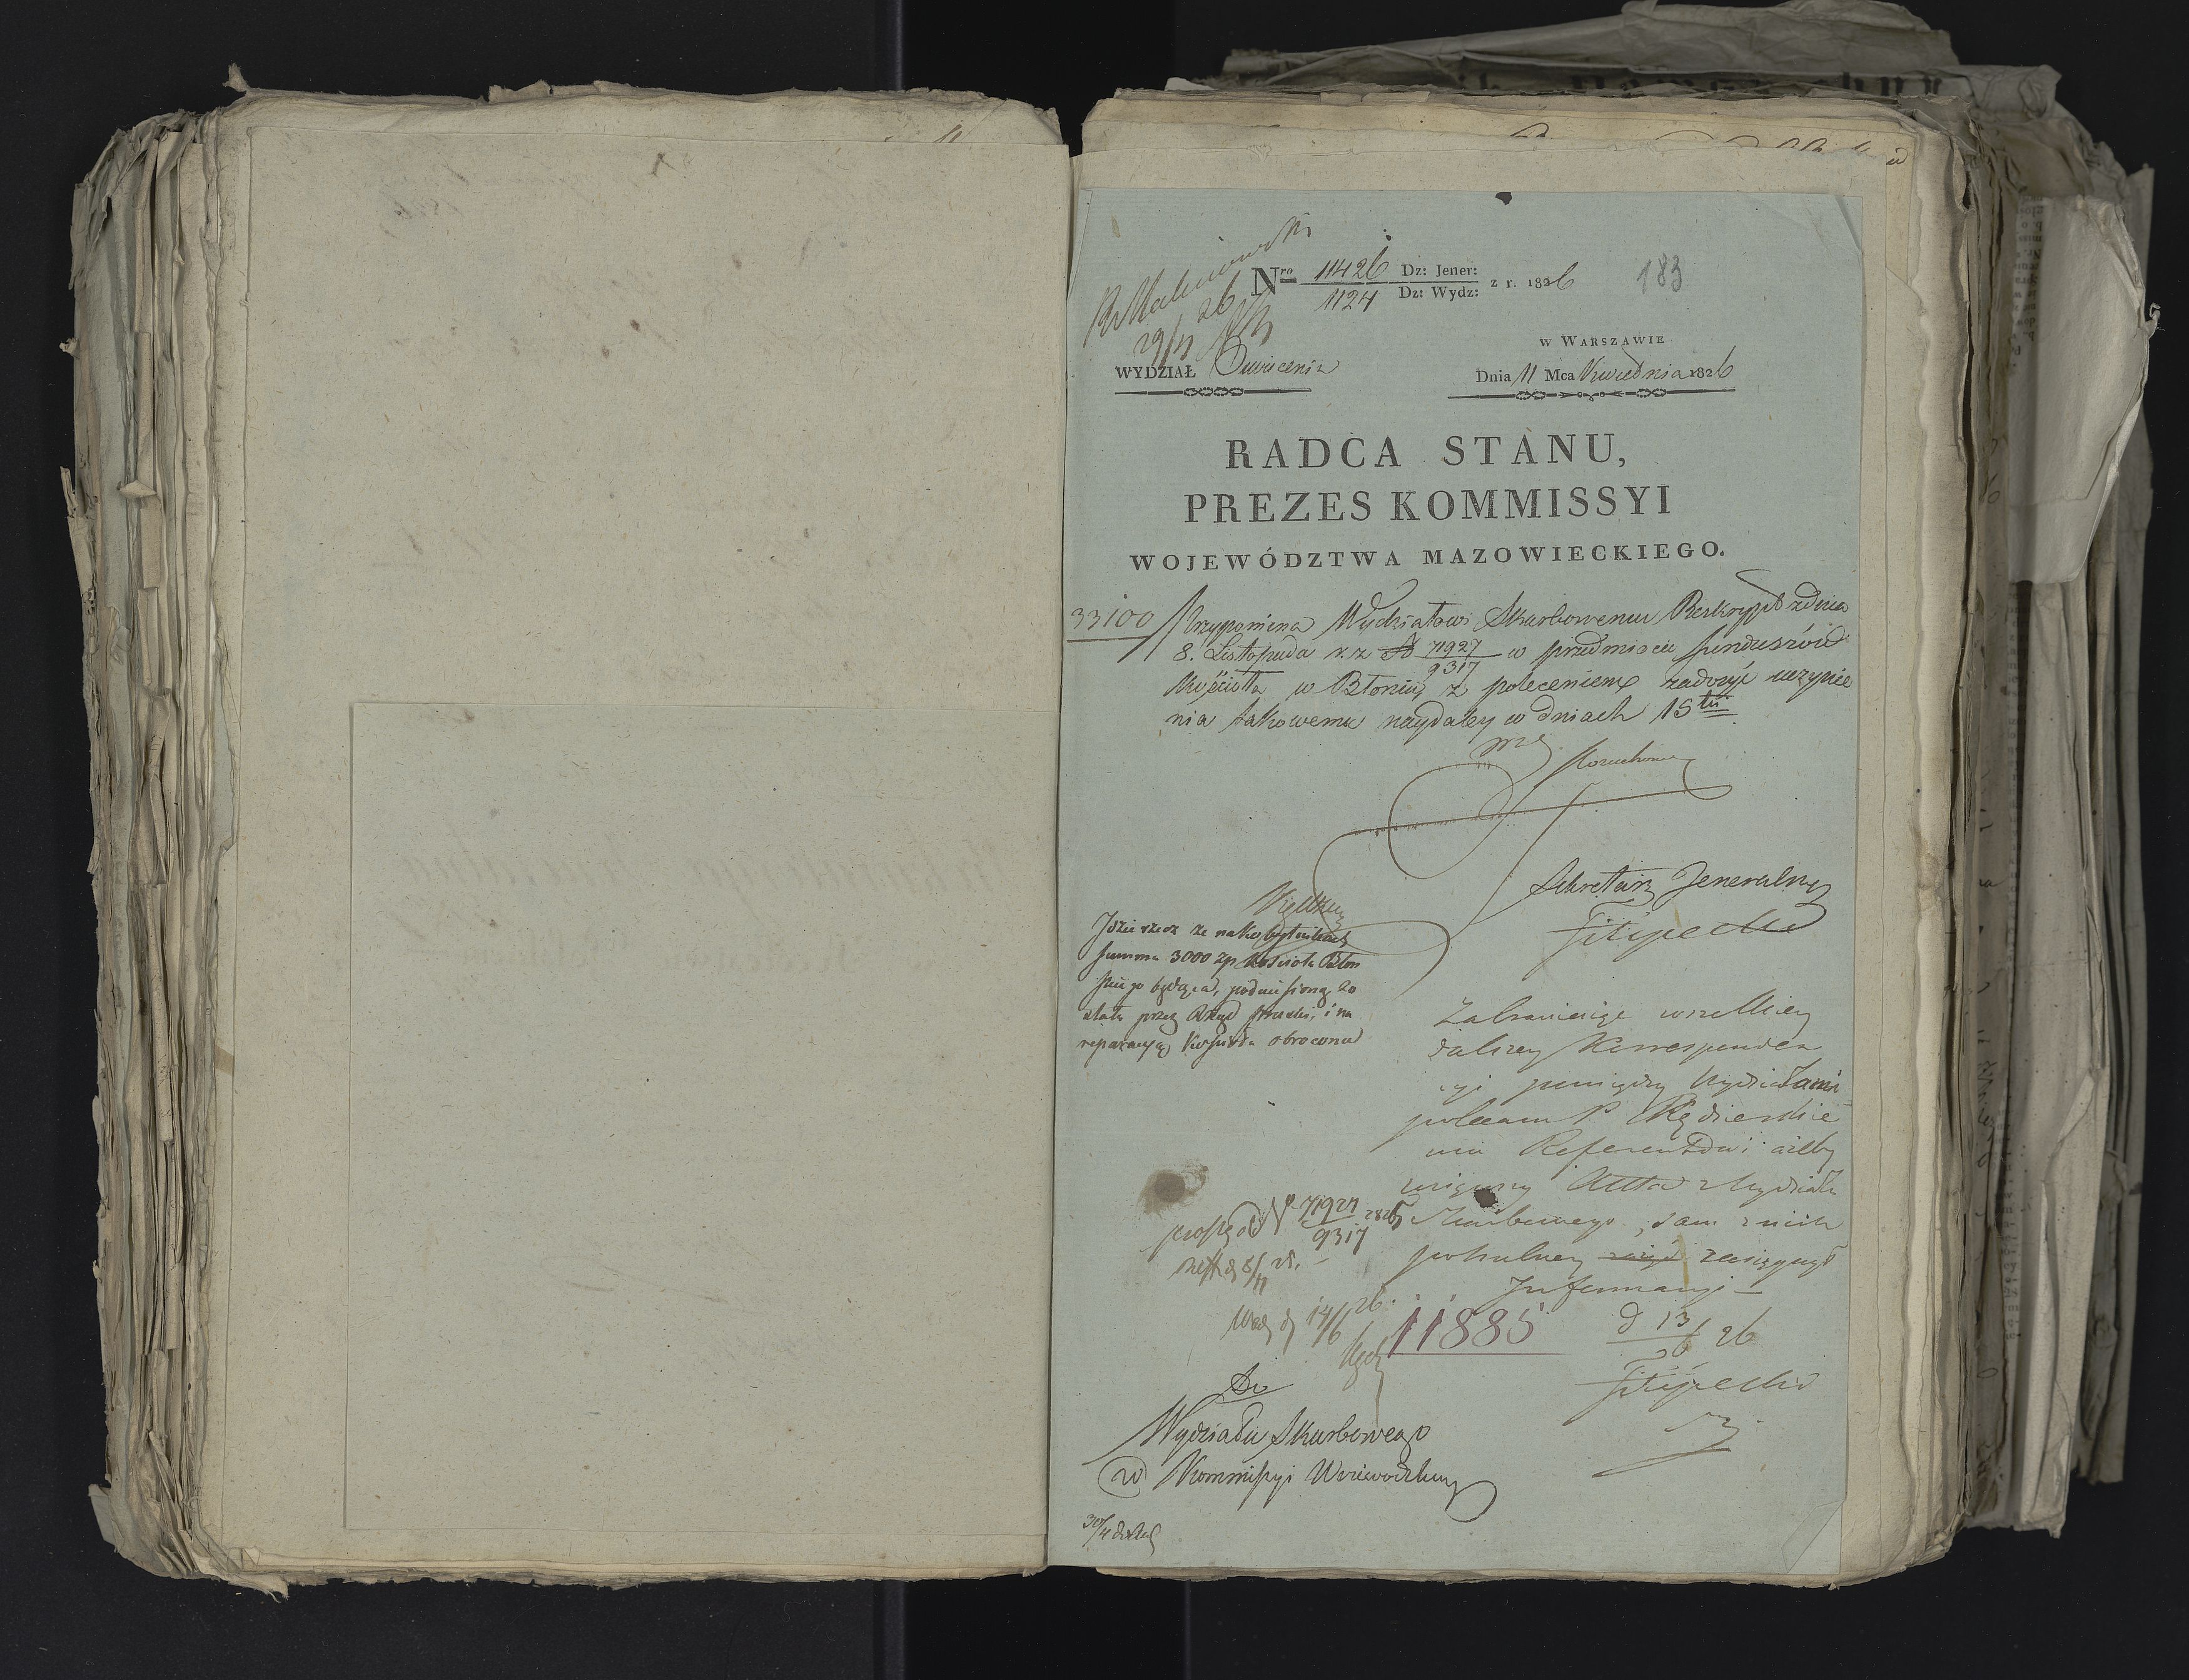 183
Nro 11426 Dz: Jener: z r. 1826
1124 Dz: Wydz:
29/4 26
w WARSZAWIE
WYDZIAŁ Oświecenia
Dnia 11 Mca Kwiednia 1826
RADCA STANU,
PREZES KOMMISSYI
WOJEWÓDZTWA MAZOWIECKIEGO.
33100
Przypomina Wydziałowi Skarbowemu Reskrypt zdnia
8. Listopada r. z. No 71927/9317 w przedmiocie funduszów
Kościoła w Błoniu, z poleceniem zadosyć uczynie
nia takowemu naydaley w dniach 15tu
Sekretarz Jeneralny
Filipecki
Idzie rzecz ze na
summa 3000 zp Kościoła Błoń
skiego będąca, podniesioną zo
stała przez Rząd Pruski, i na
reparacyą Kościoła obrocona
Zabraniaiąc wszelkiey
dalszey Korresponden
cyi pomiędzy Wydziałami
polecam P.
mu Referentowi ażeby
wziąwszy Akta z Wydziału
Skarbowego, sam z nich
potrzebney zasięgnął
Informacyi
d 13/6 26
Filipecki
proszę od N 71927/9317 1825
d 8/11 25.
d 14/6 26.
11885
Do
Wydziału Skarbowego
w Kommissyi Woiewodzkiey
30/4